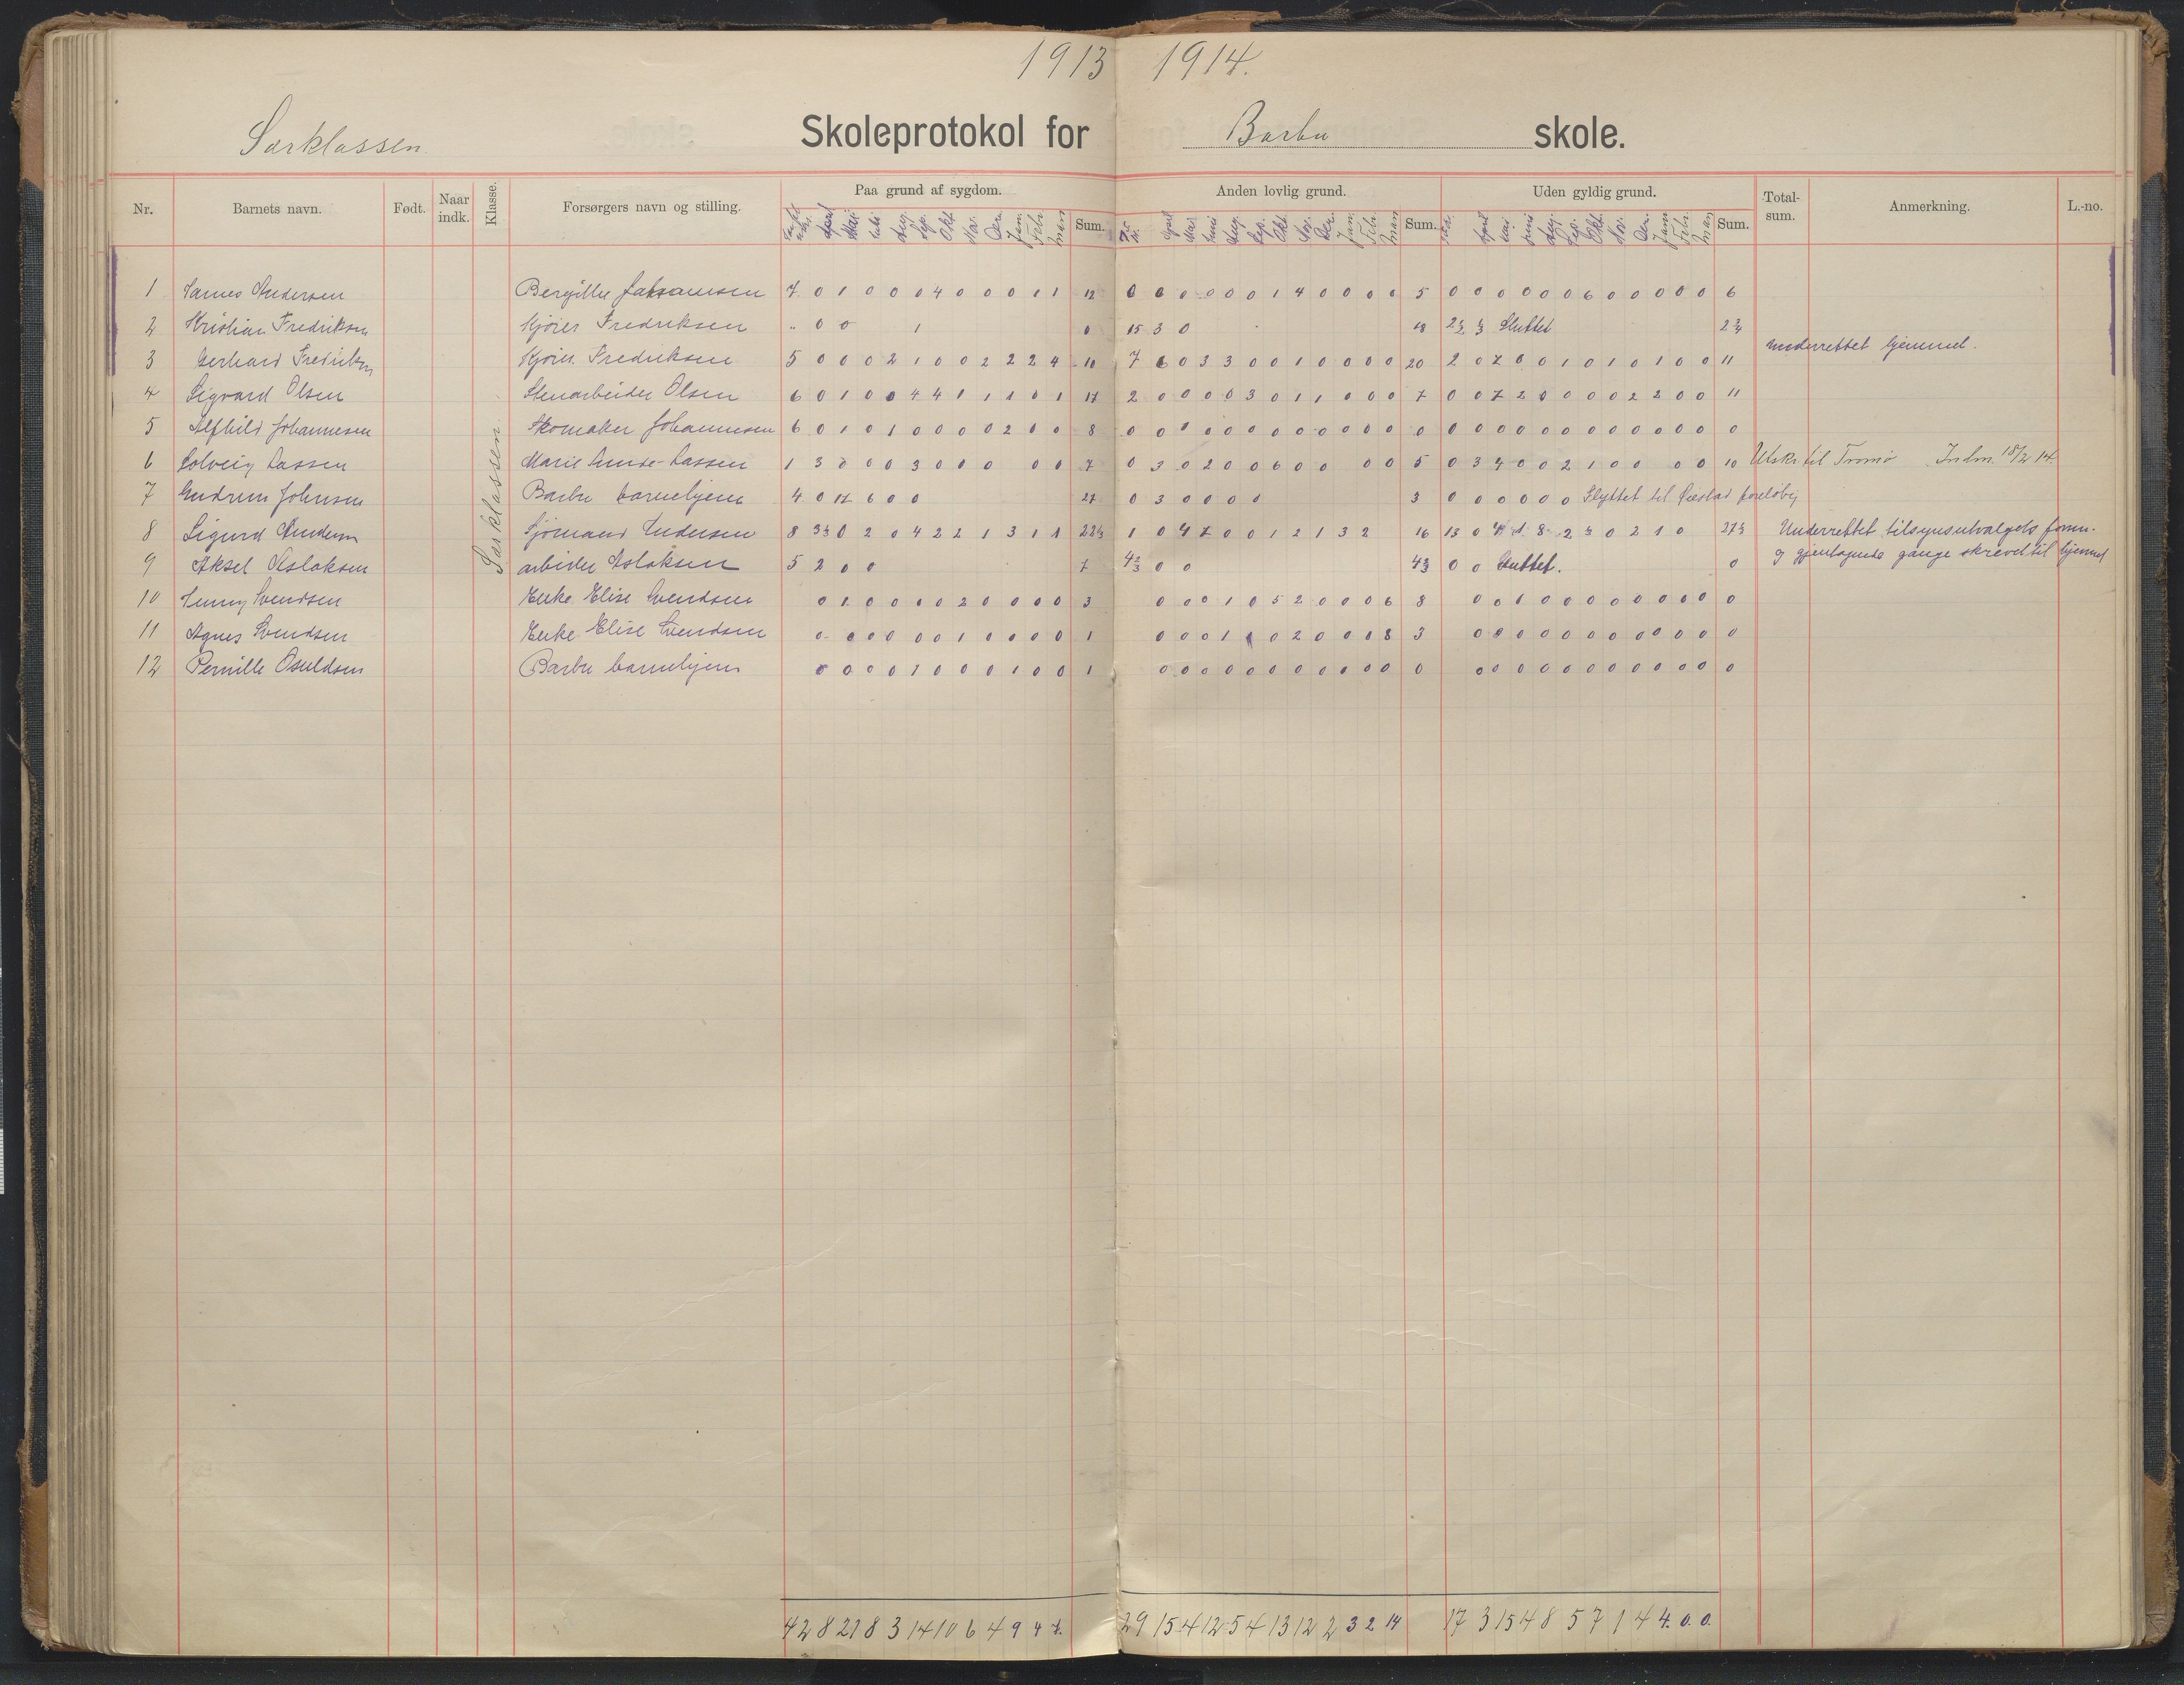 1913 1914.
Særklassen. Skoleprotokol for Barbu skole.
Nr. Barnets navn. Født. Naar indk. Klasse. Forsørgers navn og stilling. Paa grund af sygdom. Sum. Anden lovlig grund. Sum. Uden gyldig grund. Sum. Total-sum. Anmerkning. L.-no.
April Mai Juni Aug. Sep. Okt. Nov. Des. Jan. Feb. Mars
Særklassen.
1 James Andersen 7 0 1 0 0 0 4 0 0 0 0 1 1 12 0 0 0 0 0 0 1 4 0 0 0 0 5 0 0 0 0 0 0 6 0 0 0 0 0 6
2 Kristian Fredriksen Kjører Fredriksen " 0 0 1 0 15 3 0 18 Sluttet
3 Gerhard Fredriksen Kjører Fredriksen 5 0 0 0 2 1 0 0 2 2 2 4 10 7 6 0 3 3 0 0 1 0 0 0 0 20 2 0 7 0 0 1 0 1 0 1 0 0 11 Underrettet hjemmet.
4 Sigvard Olsen Stenarbeider Olsen 6 0 1 0 0 4 4 1 1 1 0 1 17 2 0 0 0 0 3 0 1 1 0 0 0 7 0 0 7 2 0 0 0 0 2 2 0 0 11
5 Alfhild Johannesen Skomaker Johannesen 6 0 1 0 1 0 0 0 0 2 0 0 8 0 0 0 0 0 0 0 0 0 0 0 0 0 0 0 0 0 0 0 0 0 0 0 0 0 0
6 Solveig Lassen Marie Lunde-Lassen 1 3 0 0 0 3 0 0 0 0 0 7 0 3 0 2 0 0 6 0 0 0 0 5 0 3 4 0 0 2 1 0 0 0 0 10 Utskr. til Tromø Indm. 18/2 14.
7 Gudrun Johnsen Barbu barnehjem 4 0 17 6 0 0 27 0 3 0 0 0 0 3 0 0 0 0 0 0 Flyttet til foreløbig
8 Sigurd Andersen Sjømand Andersen 8 0 2 0 4 2 2 1 3 1 1 1 0 4 7 0 0 1 2 1 3 2 16 13 0 Underrettet tilsynsutvalgets form.
og gjentagende gange skrevet til hjemmet
9 Aksel Aslaksen arbeider Aslaksen 5 2 0 0 7 4 2/3 0 0 4 2/3 0 0 Sluttet. 0
10 Jenny Svendsen Enke Elise Svendsen 0 1 0 0 0 0 2 0 0 0 0 3 0 0 0 1 0 5 2 0 0 0 6 8 0 0 1 0 0 0 0 0 0 0 0 0
11 Agnes Svendsen Enke Elise Svendsen 0 0 0 0 0 0 1 0 0 0 0 1 0 0 0 1 1 0 2 0 0 0 8 3 0 0 0 0 0 0 0 0 0 0 0 0
12 Pernille Osuldsen Barbu barnehjem 0 0 0 0 1 0 0 0 1 0 0 1 0 0 0 0 0 0 0 0 0 0 0 0 0 0 0 0 0 0 0 0 0 0 0 0
42 8 21 8 3 14 10 6 4 9 4 7. 29 15 4 12 5 4 13 12 2 3 2 14 17 3 15 4 8 5 7 1 4 4. 0. 0.